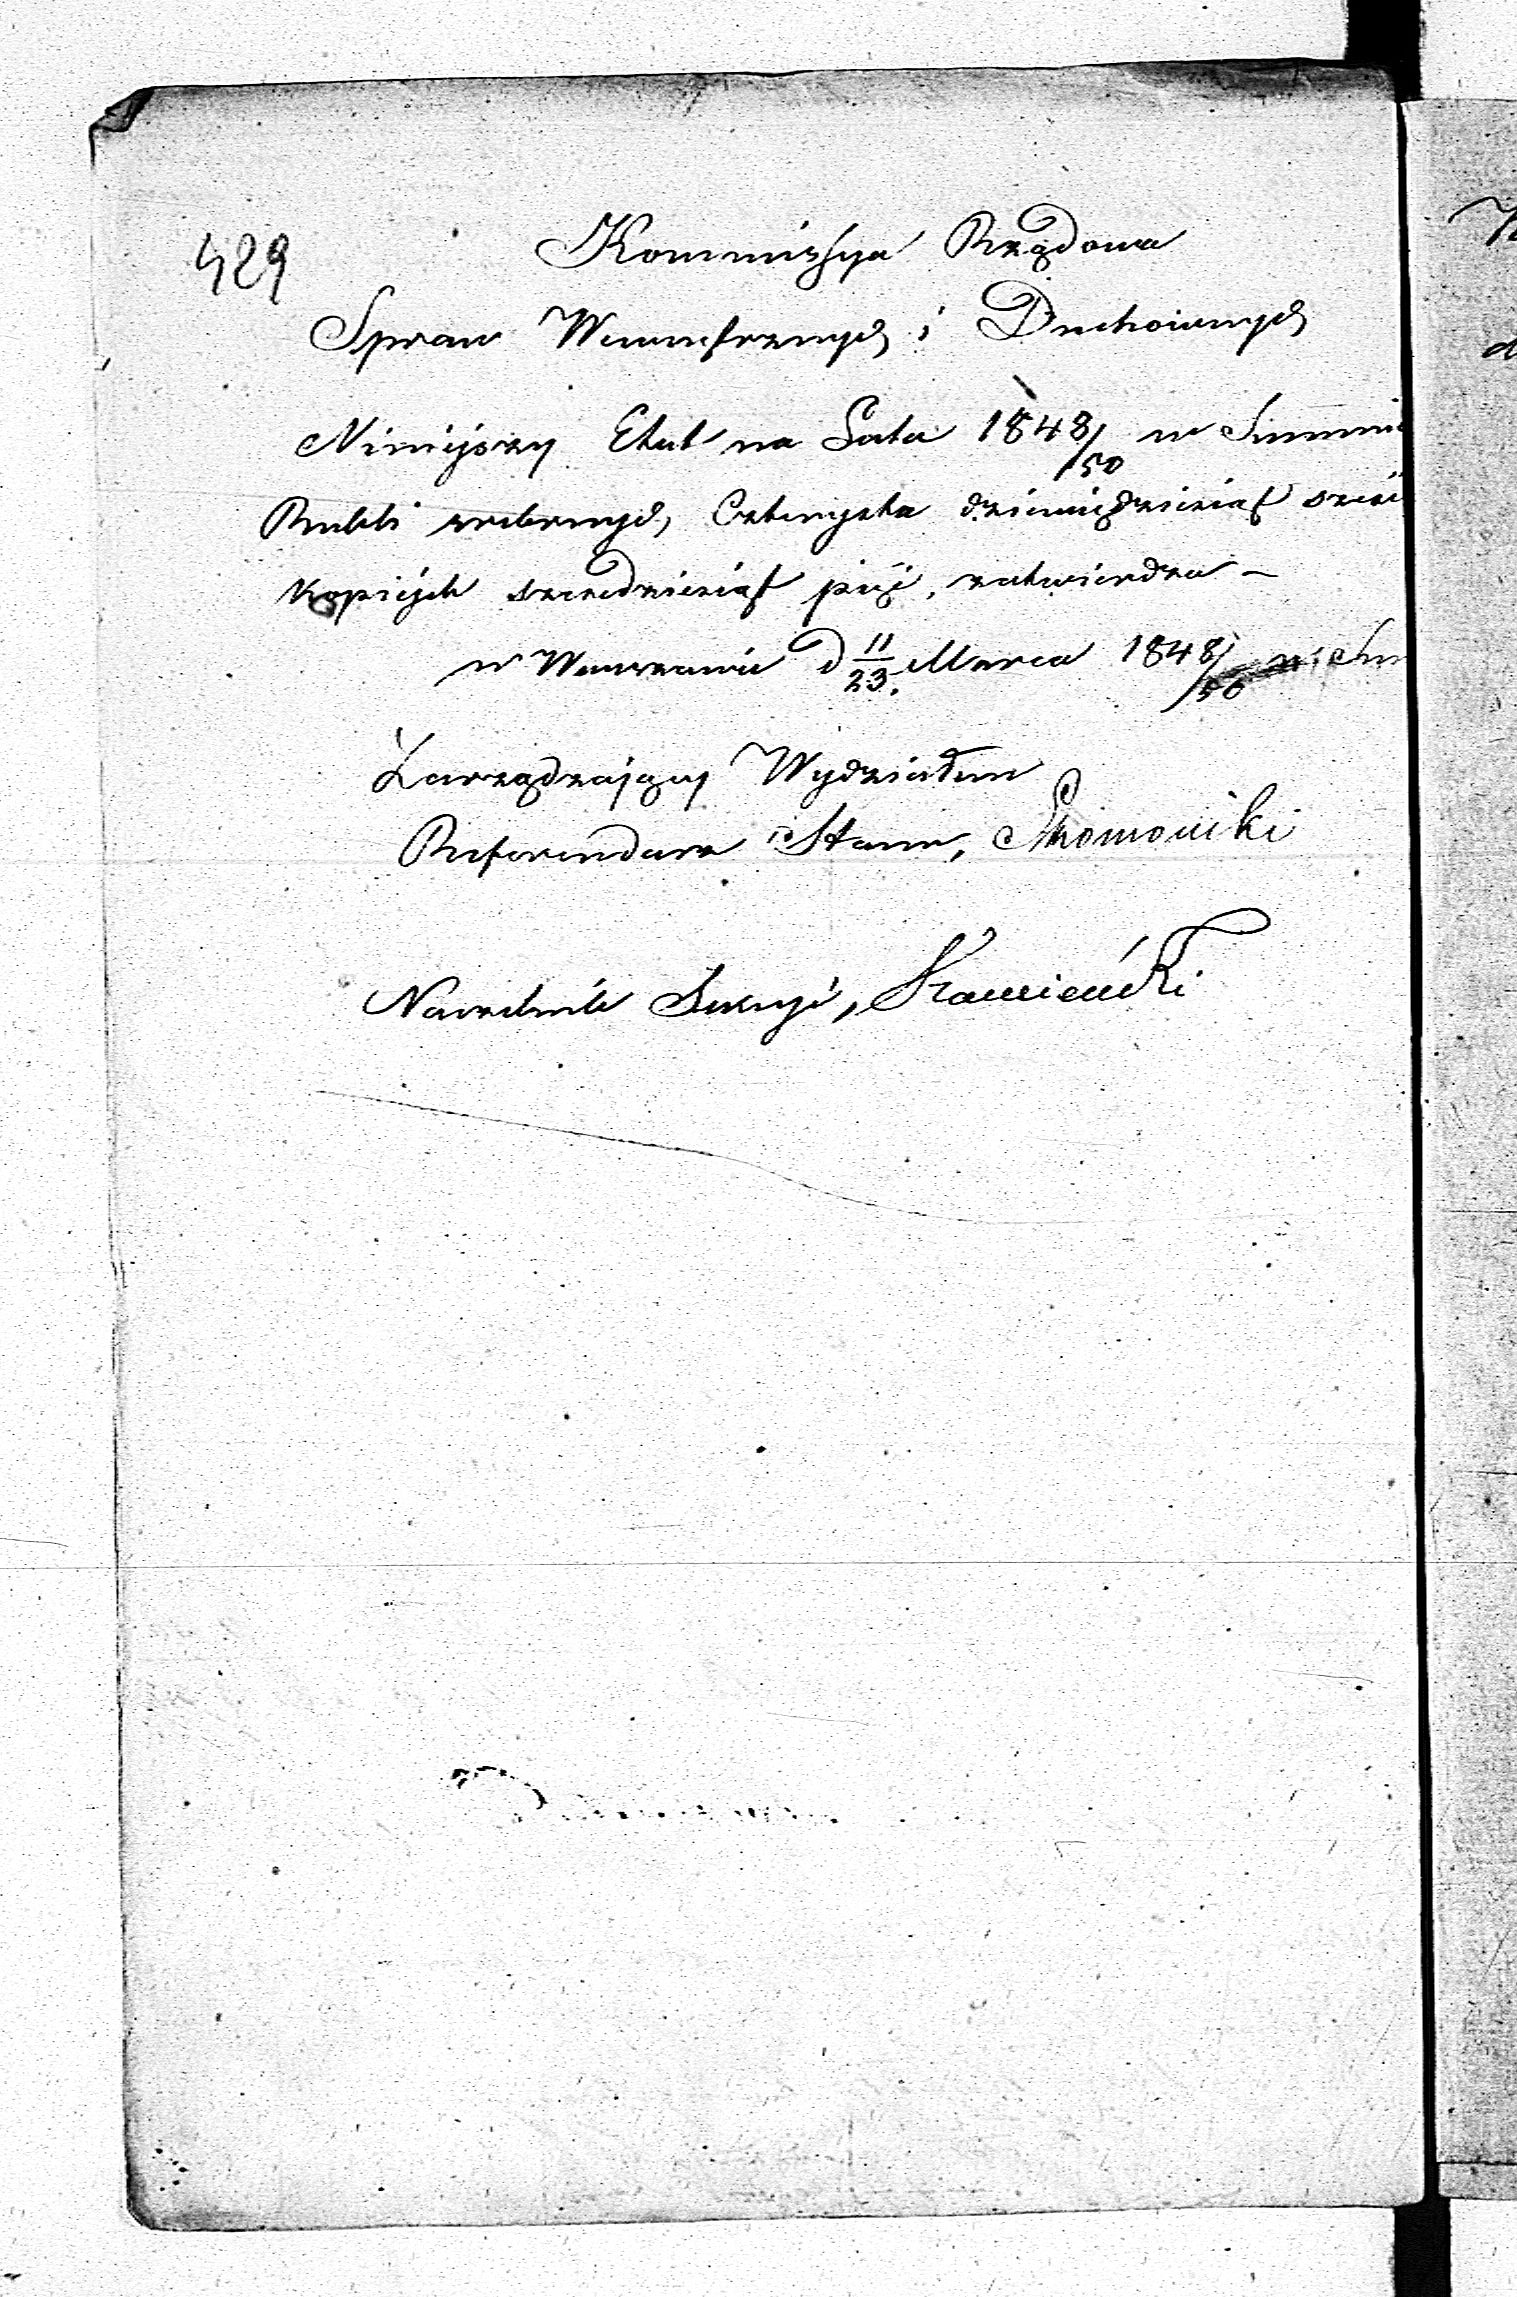 429
Kommissya Rządowa
Spraw Wewnętrznych i Duchownych
Niniejszy Etat na Lata 1848/50 w Summie
Rubli srebrnych, Czterysta dziewięćdziesiąt sześć
Kopiejek sześćdziesiąt pięć, zatwierdza –
w Warszawie d 11/23. Marca 1848/50
Zarządzający Wydziałem
Referendarz Stanu,
Naczelnik Sekcyi, Kamieński